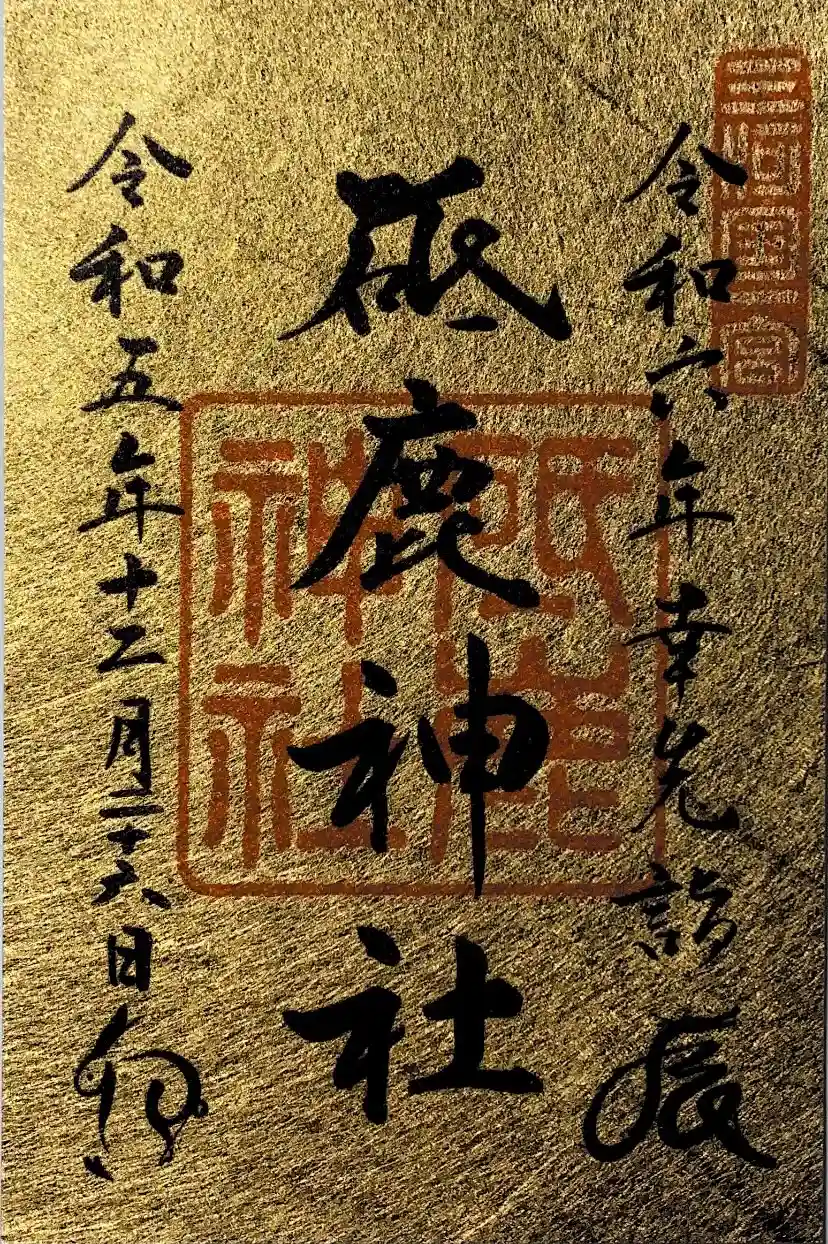 三河國一宮
令和六年幸先詣辰
砥鹿神社
砥鹿
神社
令和五年十二月二十六日卯